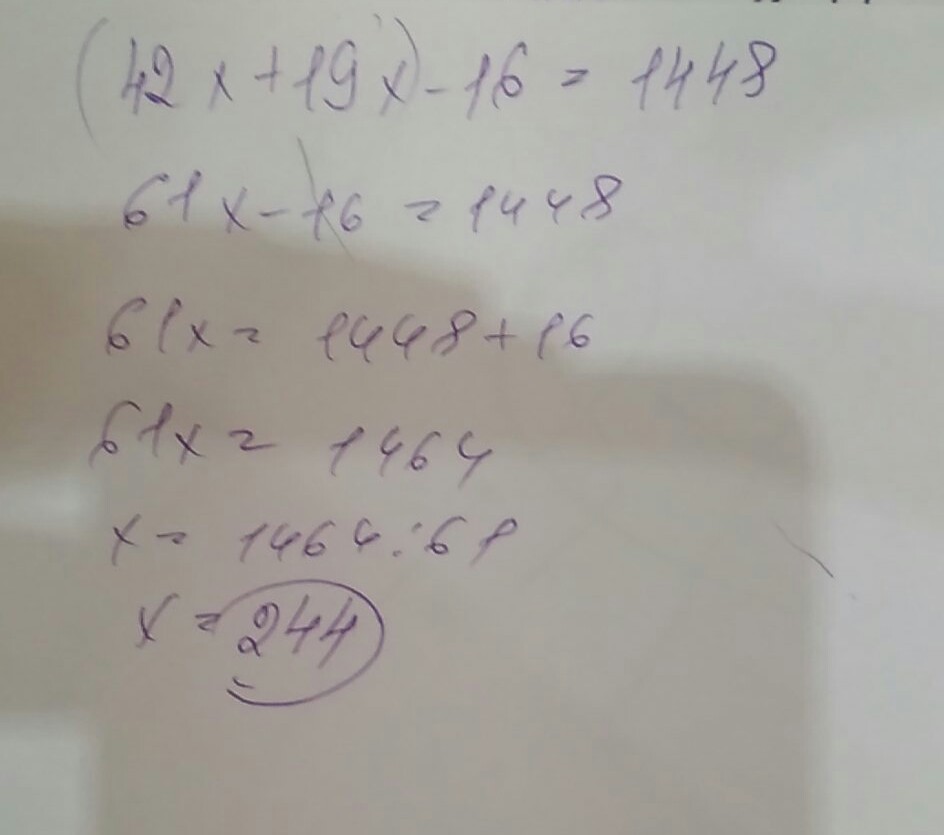 (42x+19x)-16=1448
61x-16=1448
61x=1448+16
61x=1464
x=1464:61
x=244